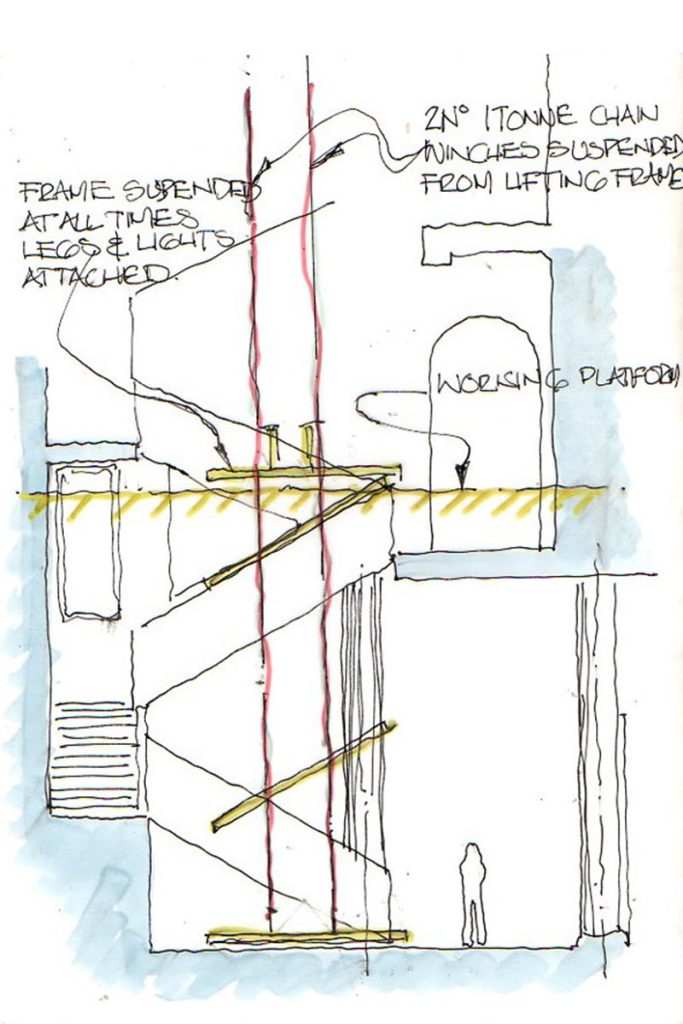 2Nº 1 TONNE CHAIN
WINCHES SUSPENDED
FROM LIFTING FRAME
FRAME SUSPENDED
AT ALL TIMES
LEGS & LIGHTS
ATTACHED.
WORKING PLATFORM